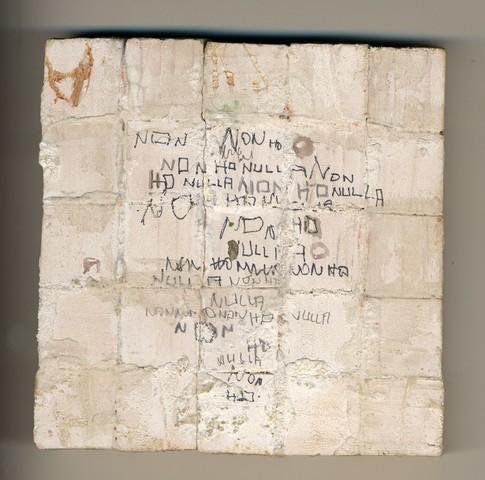 NON NON HO
NON HO NULLA NON
HO NULLA NON HO NULLA
NO
NON HO
NULLA
NON HO NULLA NON HO
NULLA NON HO
NULLA
NONHO NULLA
NON
HO
NULLA
NON
HO